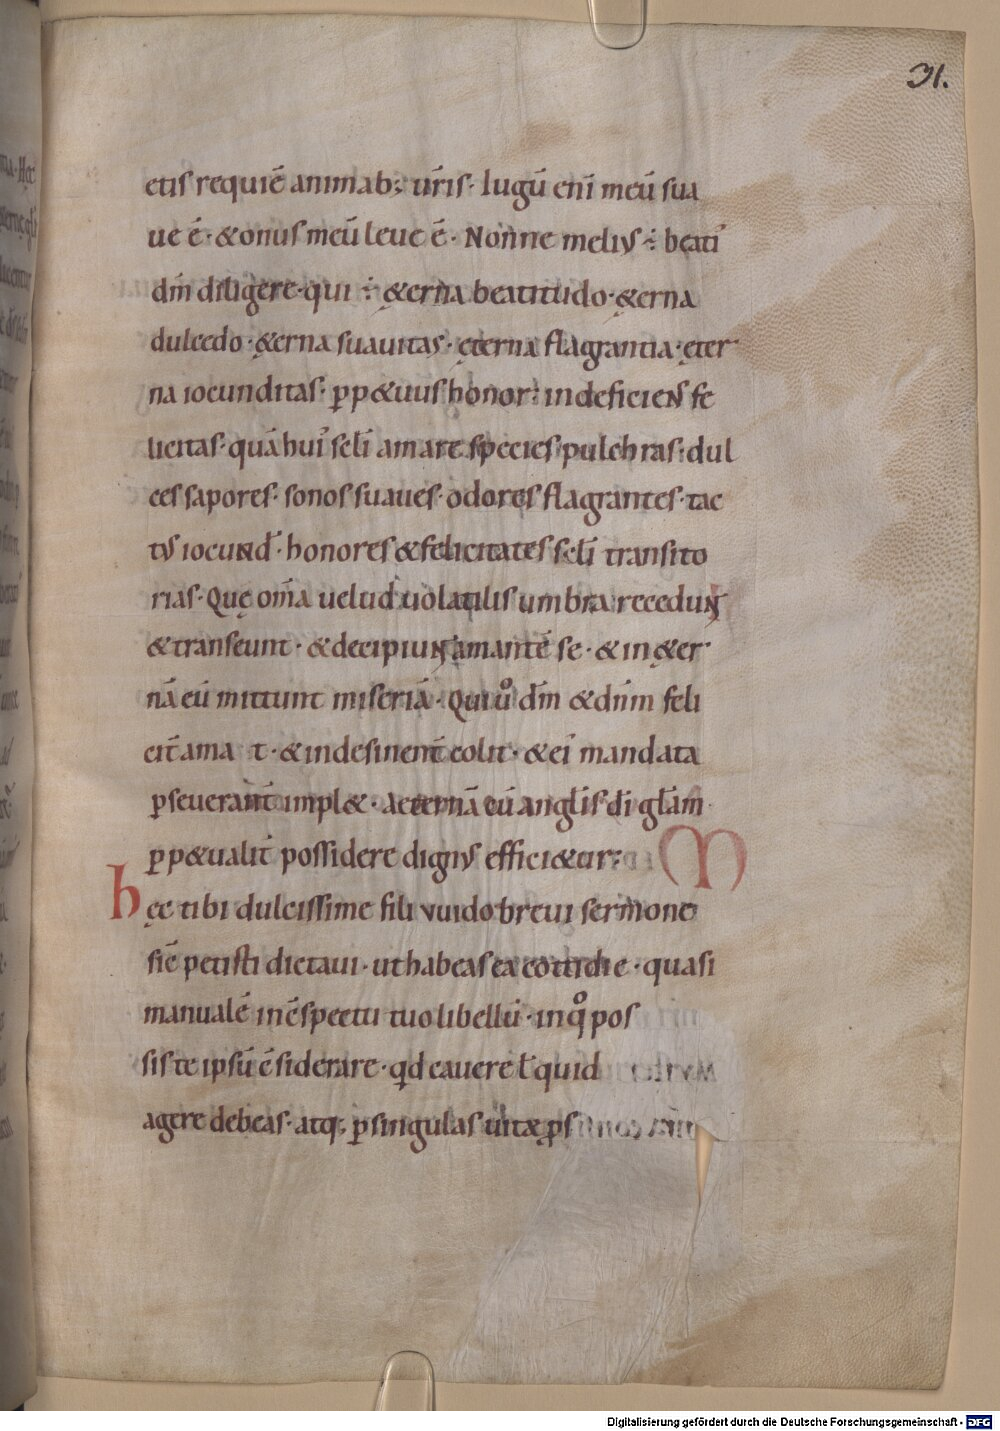 31.
etis requiē animab; ur̄is· Iugū eni̅ meū sua
ue ē· &onus meū leue ē· Nonne melius ÷ beatꝰ
dm̄ diligere· qui ÷ ę&erna beatitudo· ę&erna
dulcedo· ę&erna suauitas· ęterna flagrantia· ęter
na iocunditas· ꝑp&uus honor· indeficiens fe
licitas· quā huiꝰ scl̄i amare species pulchras· dul
ces sapores· sonos suaues· odores flagrantes· tac
tus iocund· honores &felicitates scl̄i transito
rias· Quę om̄a uelud uolatilis umbra recedunt
&transeunt· &decipiunt amantē se· & in ę&er
nā eū mittunt miseriā· Qui uͦ dm̄ &dnm̄ feli
cit̄ ama t· &indesinent̄ colit· &eiꝰ mandata
ꝑseuerant̄ impl&· aeternā cū angl̄is di gl̄am
ꝑp&ualit̄ possidere dignus effici&ur·
M
hęc tibi dulcissime fili vuido breui sermone
sic̄ petisti dictaui· ut habeas ea cottidie· quasi
manualē in c̄spectu tuo libellū· in qͦ pos
sis te ipsū c̄siderare· qd cauere t̄ quid
agere debeas· atq; ꝑ singulas uitę
Digitalisierung gefördert durch die Deutsche Forschungsgemeinschaft - DFG